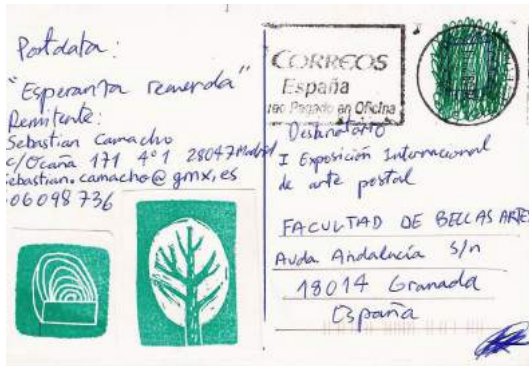 Postdata:
"Esperanza remenda"
Remitente:
Sebastian Camacho
c/Ocaña 171 4º1 28047 Madrid
ebastian.camacho@gmx.es
06098736
CORREOS
España
Pagado en Oficina
Destinatario
I Exposición Internacional
de arte postal
FACULTAD DE BELLAS ARTES
Avda Andalucía S/n
18014 Granada
España